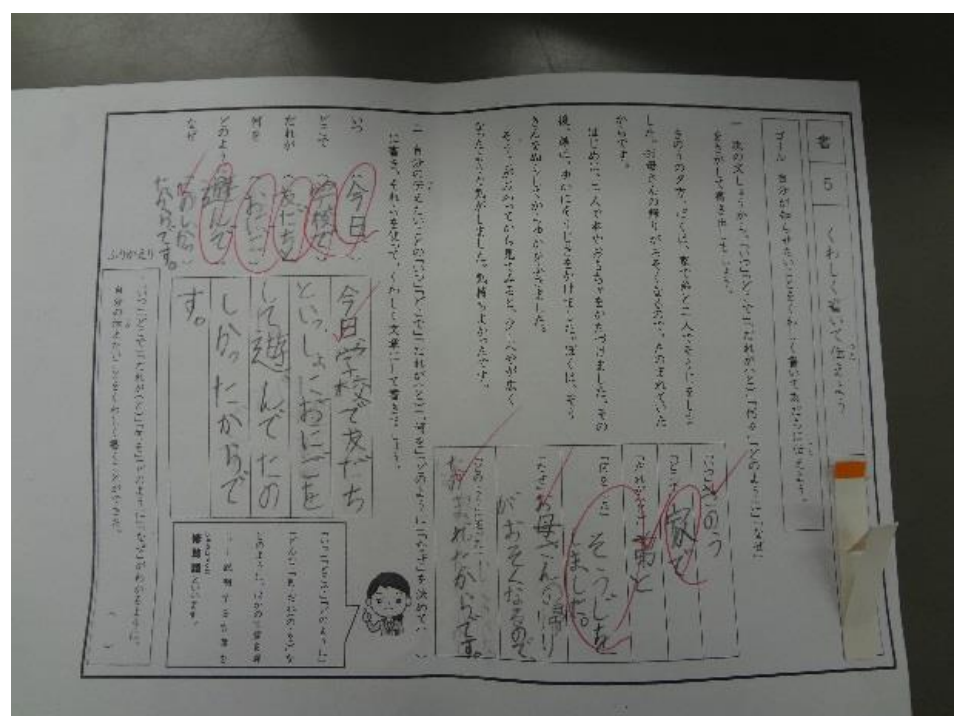 書 5 くわしく書いて伝えよう
ゴール 自分が知らせたいことをくわしく書いて
一 次の文しょうから、「いつ」「どこで」「だれが(と)」「何を」「どのように」「なぜ」
をさがして書き出しましょう。
きのうの夕方、ぼくは、家で弟と二人でそうじをしま
した。お母さんの帰りがおそくなるので、たのまれていた
からです。
はじめに、二人で本やおもちゃをかたづけました。その
後、弟は、
きんをぬらしてからゆかをふきました。
そうじがおわってから見てみると、少しへやが広く
なったような気がしました。気持ちよかったです。
きのう
家で
弟と
そうじを
ました。
お母さんの帰り
がおそくなるので
たのまれたからです。
二 自分の伝えたいことの「いつ」「どこで」「だれが(と)」「何を」「どのように」「なぜ」を決めて( )
に書き、それらを使って、くわしく文章にして書きましょう。
いつ (今日)
どこで (学校で)
だれが (友だち)
何を (おにご)
どのように (遊んで)
なぜ (たのしかっ
たからです。)
今日学校で友だち
といっしょにおにごを
して遊んでたの
しかったからで
す。
「いつ」「どこで」「どのように」
「どんな」「何(だれ)の」な
どのように、ほかの言葉を
くわしく説明する言葉を
修飾語といいます。
ふりかえり
「いつ」「どこで」「だれが(と)」「何を」「どのように」「なぜ」がわかるように、
自分の伝えたいことをくわしく書くことができた。
( )